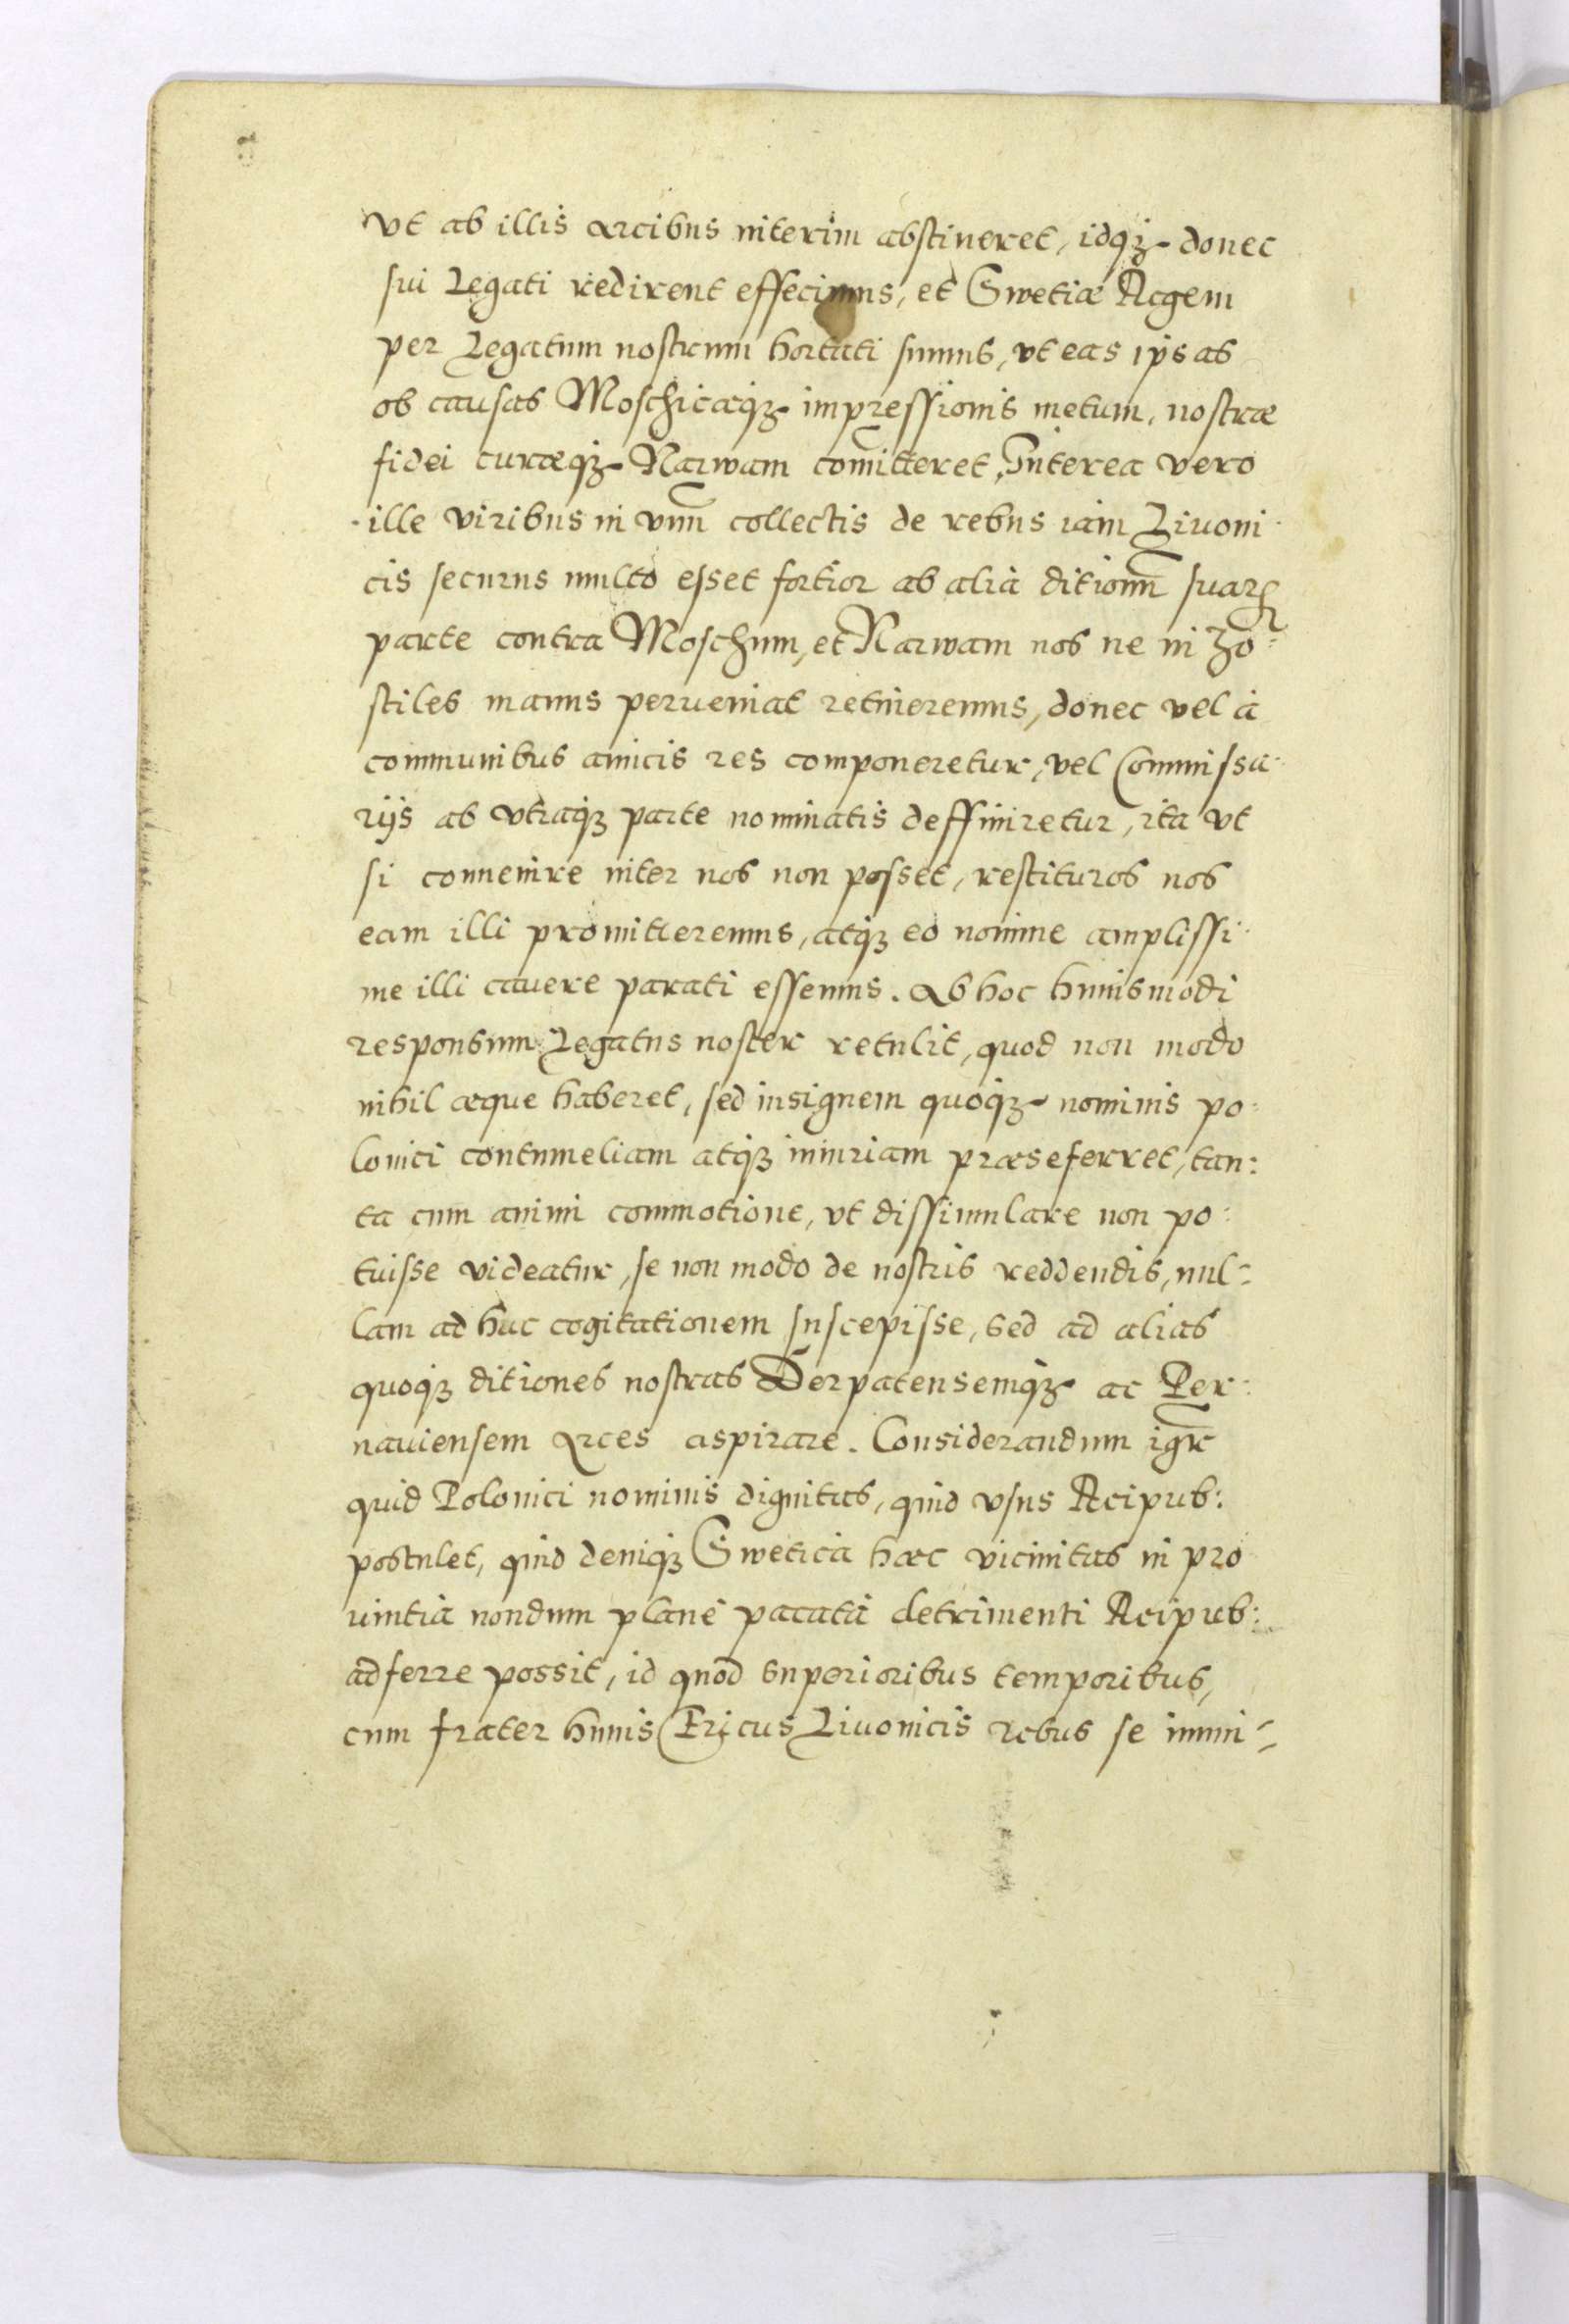 vt ab illis arcibus interim abstineret, idqꝫ donec
sui Legati redirent effecimus, et Swetiæ Regem
per Legatum nostrum hortati sumus, vt eas ipsas
ob causas Moschicæqꝫ impressionis metum, nostræ
fidei curæqꝫ Narwam com̄itteret, Interea vero
ille viribus in vnū collectis de rebus iam Liuoni-
cis securus multo esset fortior ab alia ditionū suarꝝ
parte contra Moschum, et Narwam nos ne in ho-
stiles manus perueniat retineremus, donec vel à
communibus amicis res componeretur, vel Commissa-
rijs ab vtraqꝫ parte nominatis deffiniretur, ita vt
si conuenire inter nos non posset, restituros nos
eam illi promitteremus, atqꝫ eo nomine amplissi-
me illi cauere parati essemus. Ab hoc huiusmodi
responsum Legatus noster retulit, quod non modo
nihil æque haberet, sed insignem quoqꝫ nominis po-
lonici contumeliam atqꝫ iniuriam præseferret, tan:
ta cum animi commotione, vt dissimulare non po:
tuisse videatur, se non modo de nostris reddendis, nul:
lam ad huc cogitationem suscepisse, sed ad alias
quoqꝫ ditiones nostras Derpatensemqꝫ ac Per:
nauiensem Arces aspirare. Considerandum igr̄
quid Polonici nominis dignitas, quid vsus Reipub:
postulet, quid deniqꝫ Swetica hæc vicinitas in pro
uintia nondum planè pacatà detrimenti Reipub:
adferre possit, id quod superioribus temporibus,
cum frater huius Ericus Liuonicis rebus se immi-